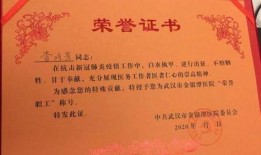 荣誉证书
同志：
在抗击新冠肺炎疫情工作中，白衣执甲、逆行出征、不怕牺
牲，甘于奉献，充分展现医务工作者医者仁心的崇高精神。
为感念您的特殊贡献，特授予您为武汉市金银潭医院“荣誉
职工”称号。
特发此证。
中共武汉市金银潭医院委员会
2020年 月 日